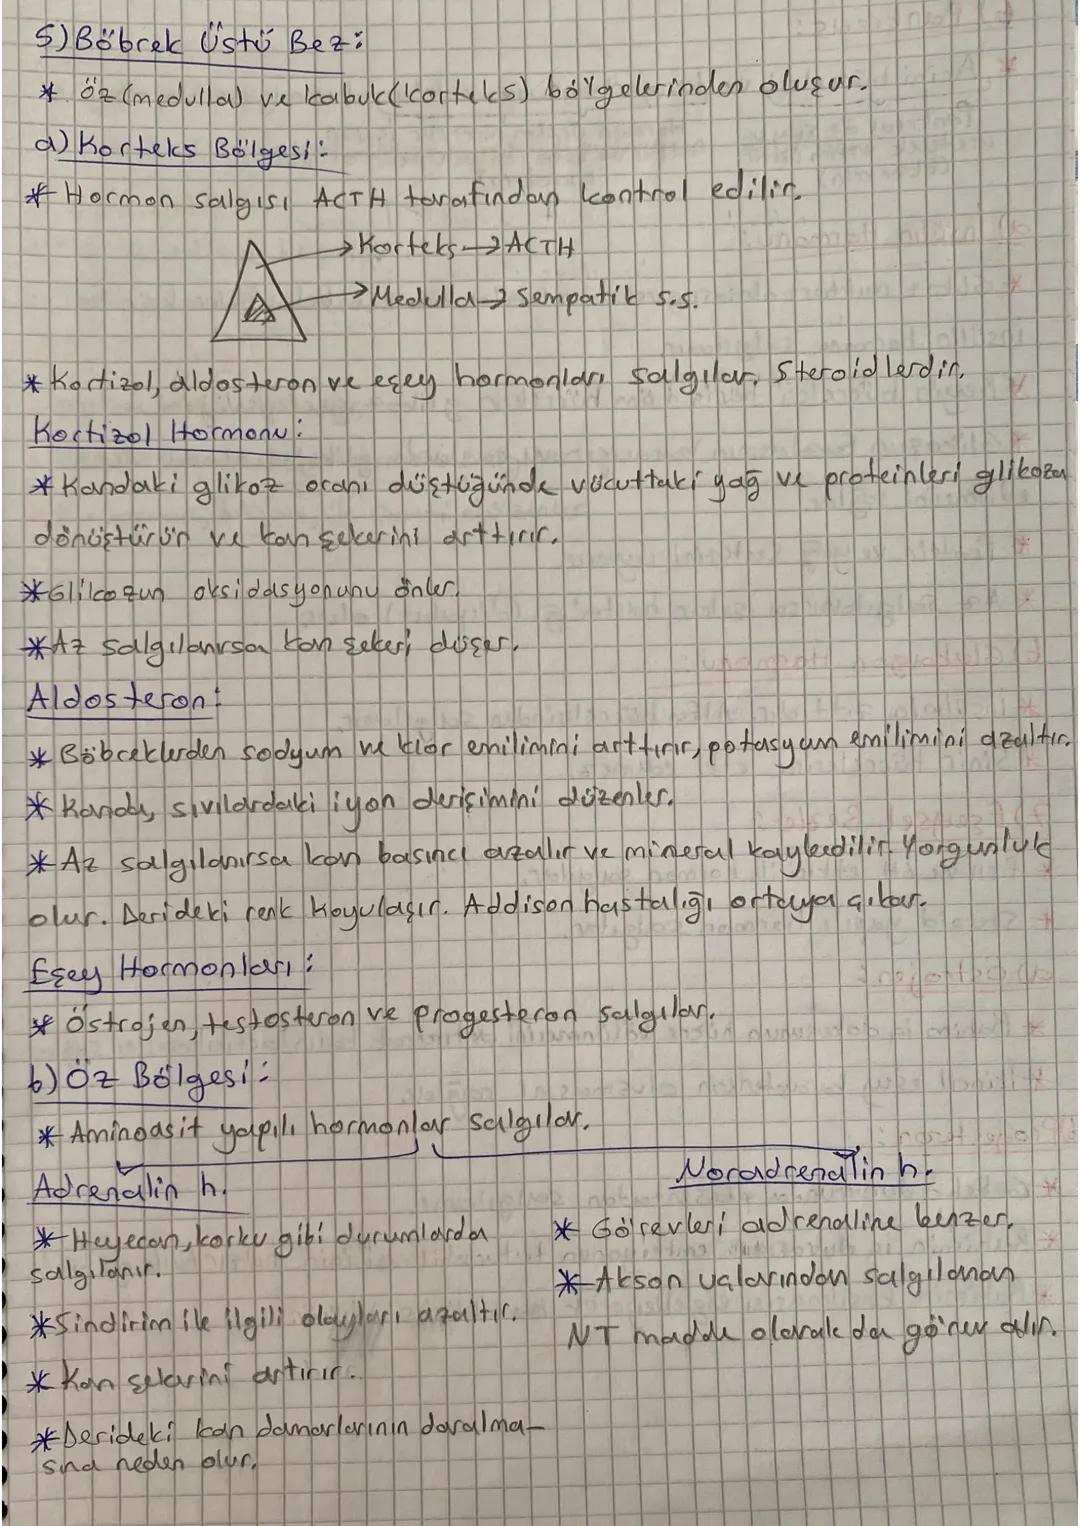 5) Böbrek Üstü Bez:
* Öz (medulla) ve kabuk (korteks) bölgelerinden oluşur.
a) Korteks Bölgesi:
* Hormon salgısı ACTH tarafından kontrol edilir.
→ Korteks → ACTH
→ Medulla → Sempatik s.s.
* Kortizol, aldosteron ve eşey hormonları salgılar. Steroidlerdir.
Kortizol Hormonu:
* Kandaki glikoz oranı düştüğünde vücuttaki yağ ve proteinleri glikoza
dönüştürür ve kan şekerini arttırır.
* Glikozun oksidasyonunu önler.
* Az salgılanırsa kan şekeri düşer.
Aldosteron:
* Böbreklerden sodyum ve klor emilimini arttırır, potasyum emilimini azaltır.
* Kanda, sıvılardaki iyon derişimini düzenler.
* Az salgılanırsa kan basıncı azalır ve mineral kaybedilir. Yorgunluk
olur. Derideki renk koyulaşır. Addison hastalığı ortaya çıkar.
Eşey Hormonları:
* Östrojen, testosteron ve progesteron salgılar.
b) Öz Bölgesi:
* Aminoasit yapılı hormonlar salgılar.
Adrenalin h.
* Heyecan, korku gibi durumlarda
salgılanır.
* Sindirim ile ilgili olayları azaltır.
* Kan şekerini artırır.
* Derideki kan damarlarının daralma-
sına neden olur.
Noradrenalin h.
* Görevleri adrenaline benzer.
* Akson uçlarından salgılanan
NT madde olarak da görev alır.